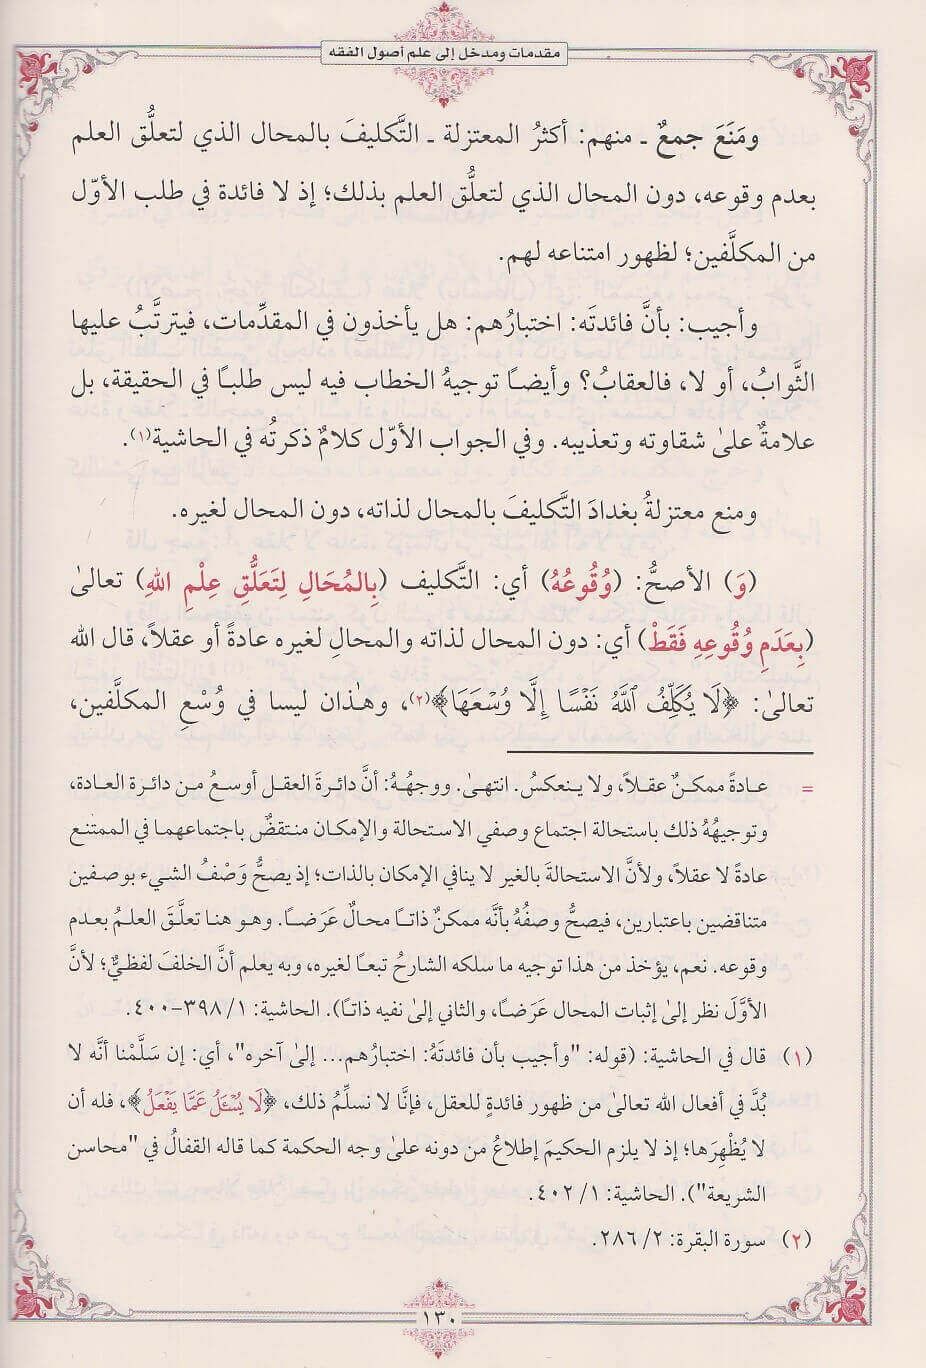 مقدمات ومدخل إلى علم أصول الفقه
ومَنَعَ جمعٌ ـ منهم: أكثرُ المعتزلة ـ التَّكليفَ بالمحال الذي لتعلُّق العلم
بعدم وقوعه، دون المحال الذي لتعلُّق العلم بذلك؛ إذ لا فائدة في طلب الأوّل
من المكلَّفين؛ لظهور امتناعه لهم.
وأجيب: بأنَّ فائدتَه: اختبارُهم: هل يأخذون في المقدِّمات، فيترتَّبُ عليها
الثَّوابُ، أو لا، فالعقابُ؟ وأيضاً توجيهُ الخطاب فيه ليس طلباً في الحقيقة، بل
علامةٌ علىٰ شقاوته وتعذيبه. وفي الجواب الأوّل كلامٌ ذكرتُه في الحاشية(١).
ومنع معتزلةُ بغدادَ التَّكليفَ بالمحال لذاته، دون المحال لغيره.
(وَ) الأصحُّ: (وُقُوعُهُ) أي: التَّكليف (بِالمُحَالِ لِتَعَلُّقِ عِلْمِ اللهِ) تعالىٰ
(بِعَدَمِ وُقُوعِهِ فَقَطْ) أي: دون المحال لذاته والمحالِ لغيره عادةً أو عقلاً، قال الله
تعالىٰ: ﴿لَا يُكَلِّفُ ٱللَّهُ نَفْسًا إِلَّا وُسْعَهَا﴾(٢)، وهٰذان ليسا في وُسْعِ المكلَّفين،
= عادةً ممكنٌ عقلاً، ولا ينعكسُ. انتهىٰ. ووجهُهُ: أنَّ دائرةَ العقل أوسعُ من دائرة العادة،
وتوجيهُهُ ذلك باستحالة اجتماع وصفي الاستحالة والإمكان منتقضٌ باجتماعهما في الممتنع
عادةً لا عقلاً، ولأنَّ الاستحالةَ بالغير لا ينافي الإمكان بالذات؛ إذ يصحُّ وَصْفُ الشيء بوصفين
متناقضين باعتبارين، فيصحُّ وصفُهُ بأنَّه ممكنٌ ذاتاً محالٌ عَرَضاً. وهو هنا تعلَّقَ العلمُ بعدم
وقوعه. نعم، يؤخذ من هذا توجيه ما سلكه الشارحُ تبعاً لغيره، وبه يعلم أنَّ الخلفَ لفظيٌّ؛ لأنَّ
الأوَّلَ نظر إلىٰ إثبات المحال عَرَضاً، والثاني إلىٰ نفيه ذاتاً). الحاشية: ١/ ٣٩٨-٤٠٠.
(١) قال في الحاشية: (قوله: "وأجيب بأن فائدتَهُ: اختبارُهم... إلىٰ آخره"، أي: إن سَلَّمْنا أنَّه لا
بُدَّ في أفعال الله تعالىٰ من ظهور فائدةٍ للعقل، فإنَّا لا نسلِّمُ ذلك، ﴿لَا يُسْـَٔلُ عَمَّا يَفْعَلُ﴾، فله أن
لا يُظْهِرَها؛ إذ لا يلزم الحكيمَ إطلاعُ من دونه علىٰ وجه الحكمة كما قاله القفالُ في "محاسن
الشريعة"). الحاشية: ١/ ٤٠٢.
(٢) سورة البقرة: ٢/ ٢٨٦.
١٣٠